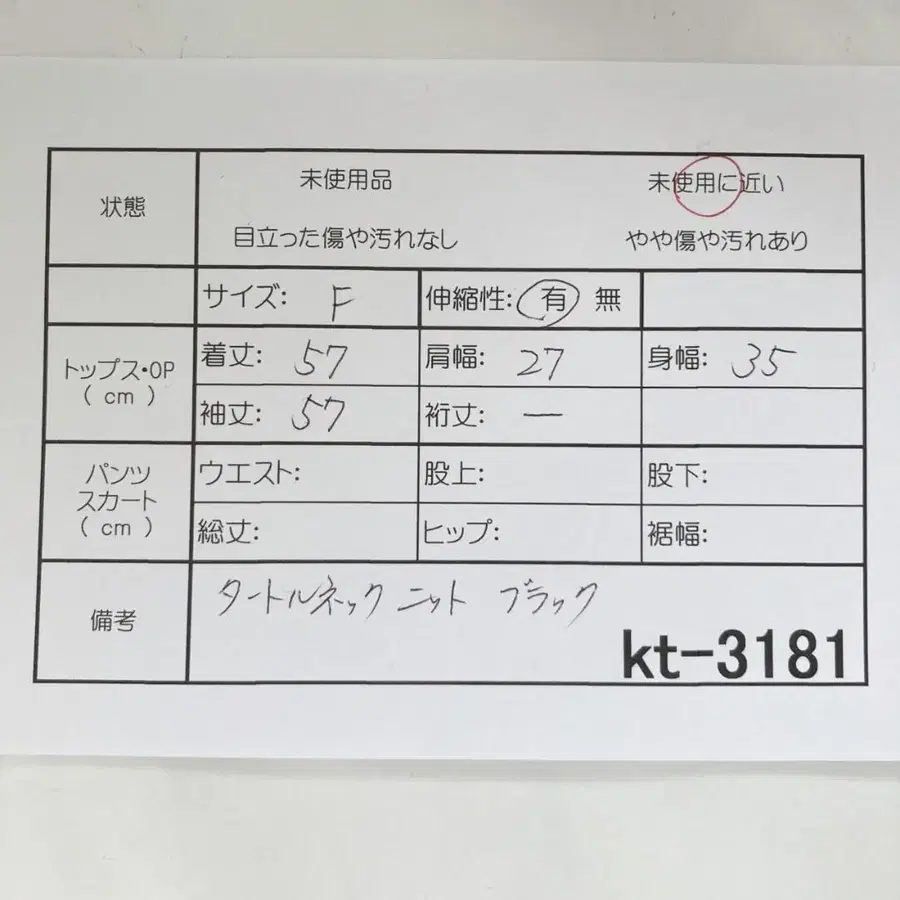 状態
未使用品 未使用に近い
目立った傷や汚れなし やや傷や汚れあり
サイズ: F 伸縮性: 有 無
トップス・OP
( cm )
着丈: 57 肩幅: 27 身幅: 35
袖丈: 57 裄丈: —
パンツ
スカート
( cm )
ウエスト: 股上: 股下:
総丈: ヒップ: 裾幅:
備考
タートルネック ニット ブラック
kt-3181